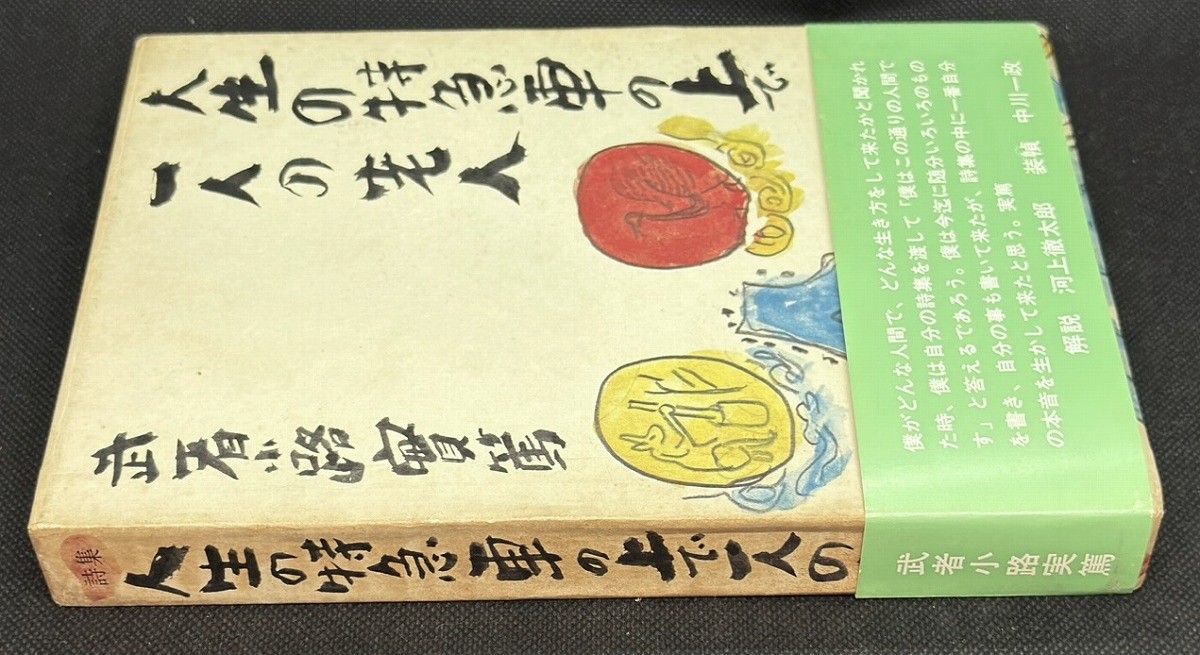 人生の特急車の上で
一人の老人
武者小路實篤
僕がどんな人間で、どんな生き方をして来たかと聞かれ
た時、僕は自分の詩集を渡して「僕はこの通りの人間で
す」と答えるであろう。僕は今迄に随分いろいろのもの
を書き、自分の事も書いて来たが、詩集の中に一番自分
の本音を生かして来たと思う。実篤
解説 河上徹太郎 装幀 中川一政
詩集
人生の特急車の上で一人の
武者小路実篤